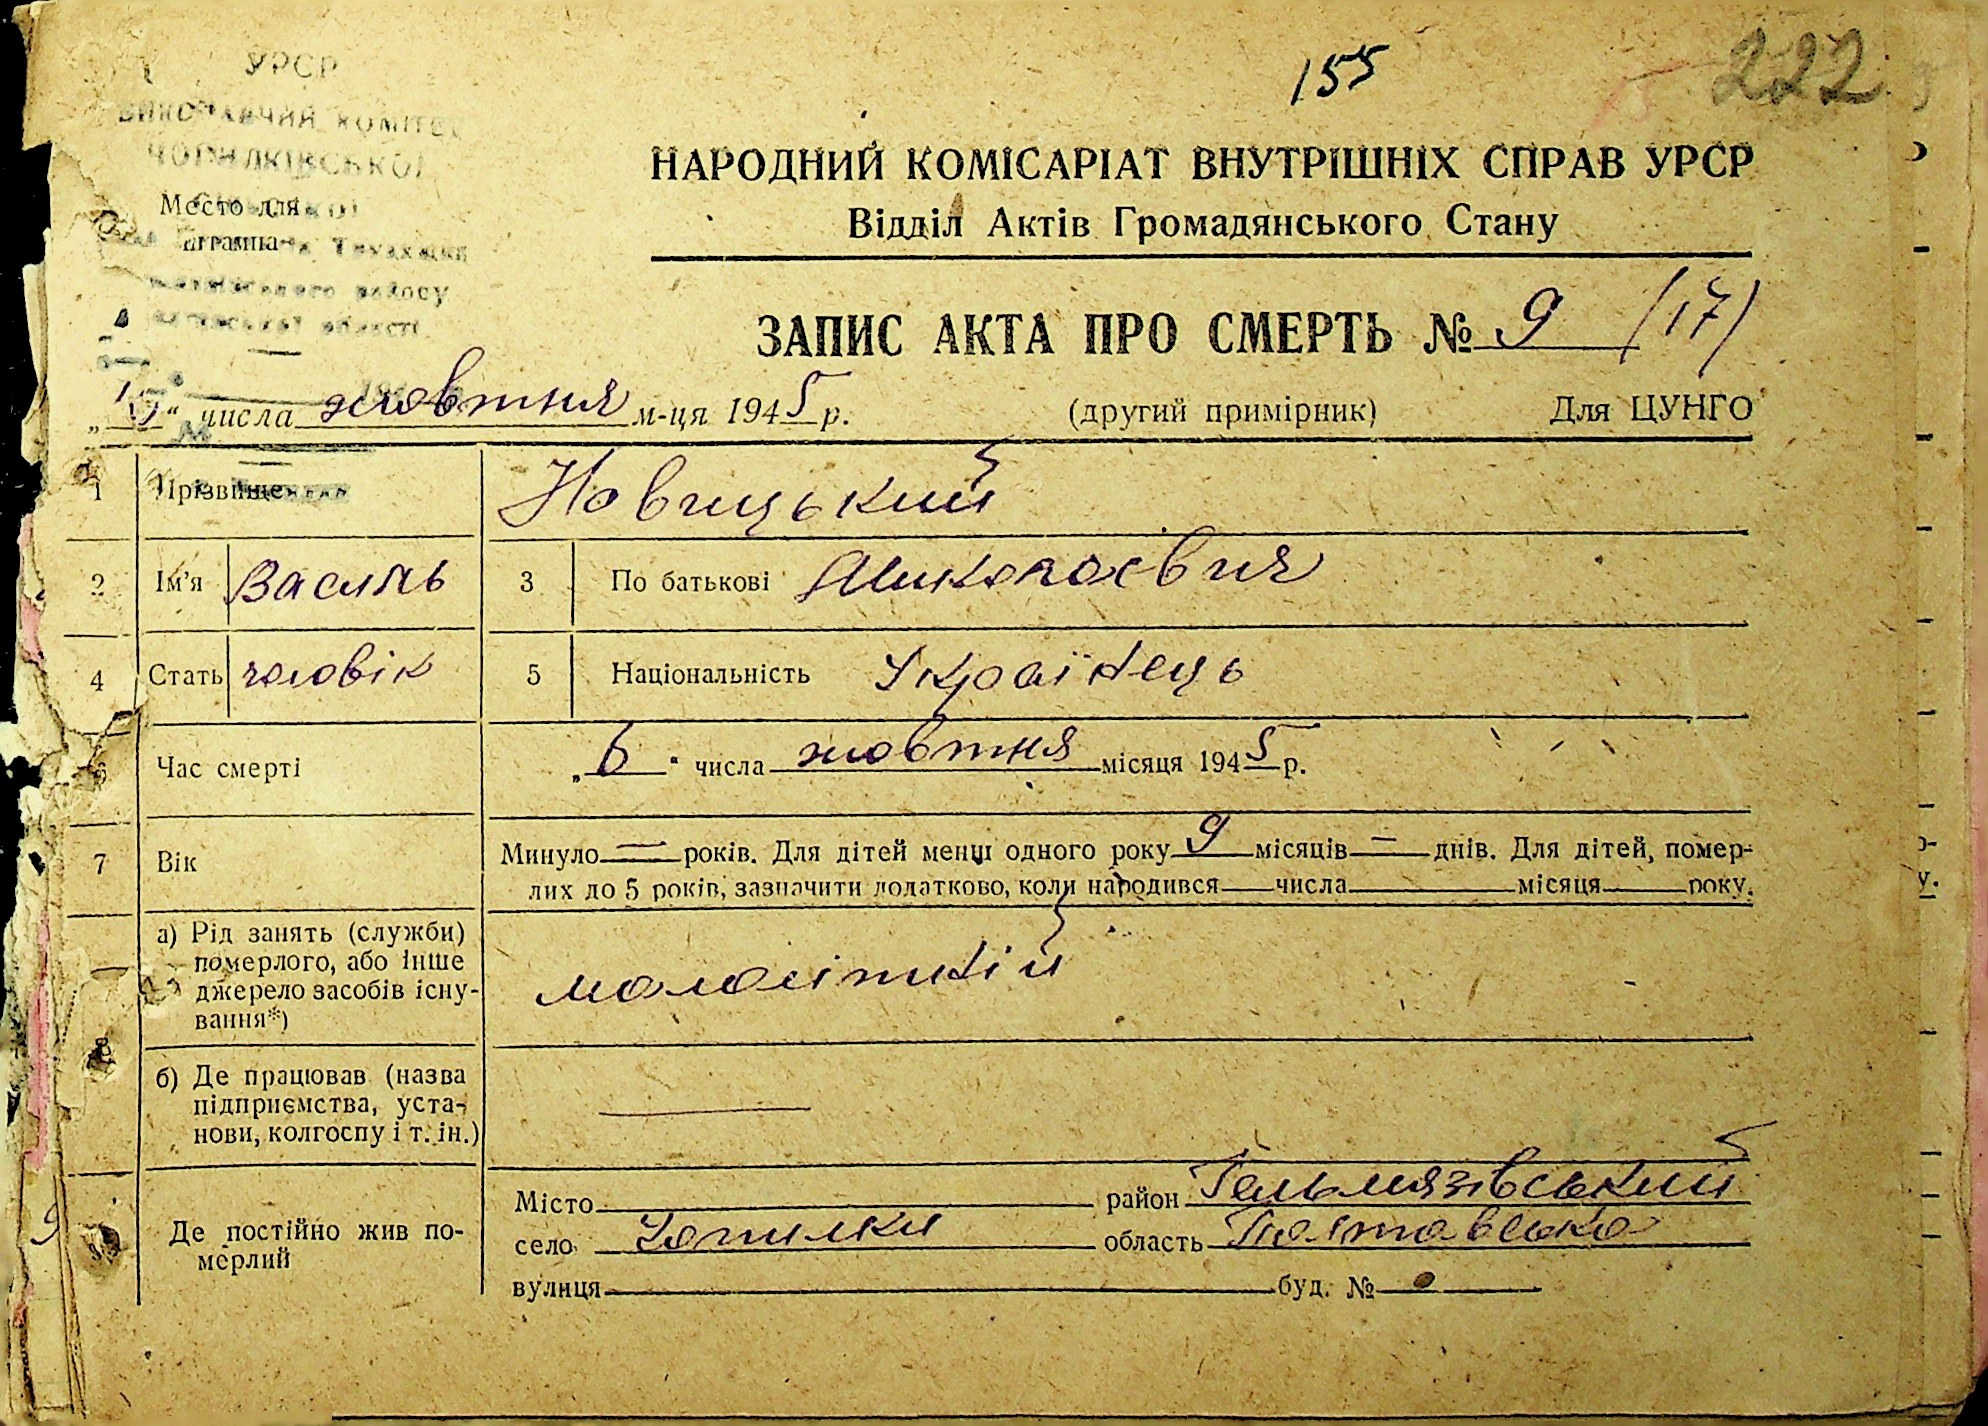 155
222
УРСР
ВИКОНАВЧИЙ КОМІТЕТ
Место для
штампа
НАРОДНИЙ КОМІСАРІАТ ВНУТРІШНІХ СПРАВ УРСР
Відділ Актів Громадянського Стану
ЗАПИС АКТА ПРО СМЕРТЬ № 9 (17)
числа жовтня м-ця 1945 р. (другий примірник) Для ЦУНГО
1 Прізвище Новицький
2 Ім'я Василь 3 По батькові Миколаєвич
4 Стать чоловік 5 Національність Українець
6 Час смерті „6" числа жовтня місяця 1945 р.
7 Вік Минуло — років. Для дітей менш одного року 9 місяців — днів. Для дітей, помер-
лих до 5 років, зазначити додатково, коли народився числа місяця року.
8 а) Рід занять (служби)
померлого, або інше
джерело засобів існу-
вання*)
малолітній
б) Де працював (назва
підприємства, уста-
нови, колгоспу і т. ін.)
9 Де постійно жив по-
мерлий
Місто район Гельмязівський
село область Полтавська
вулиця буд. №